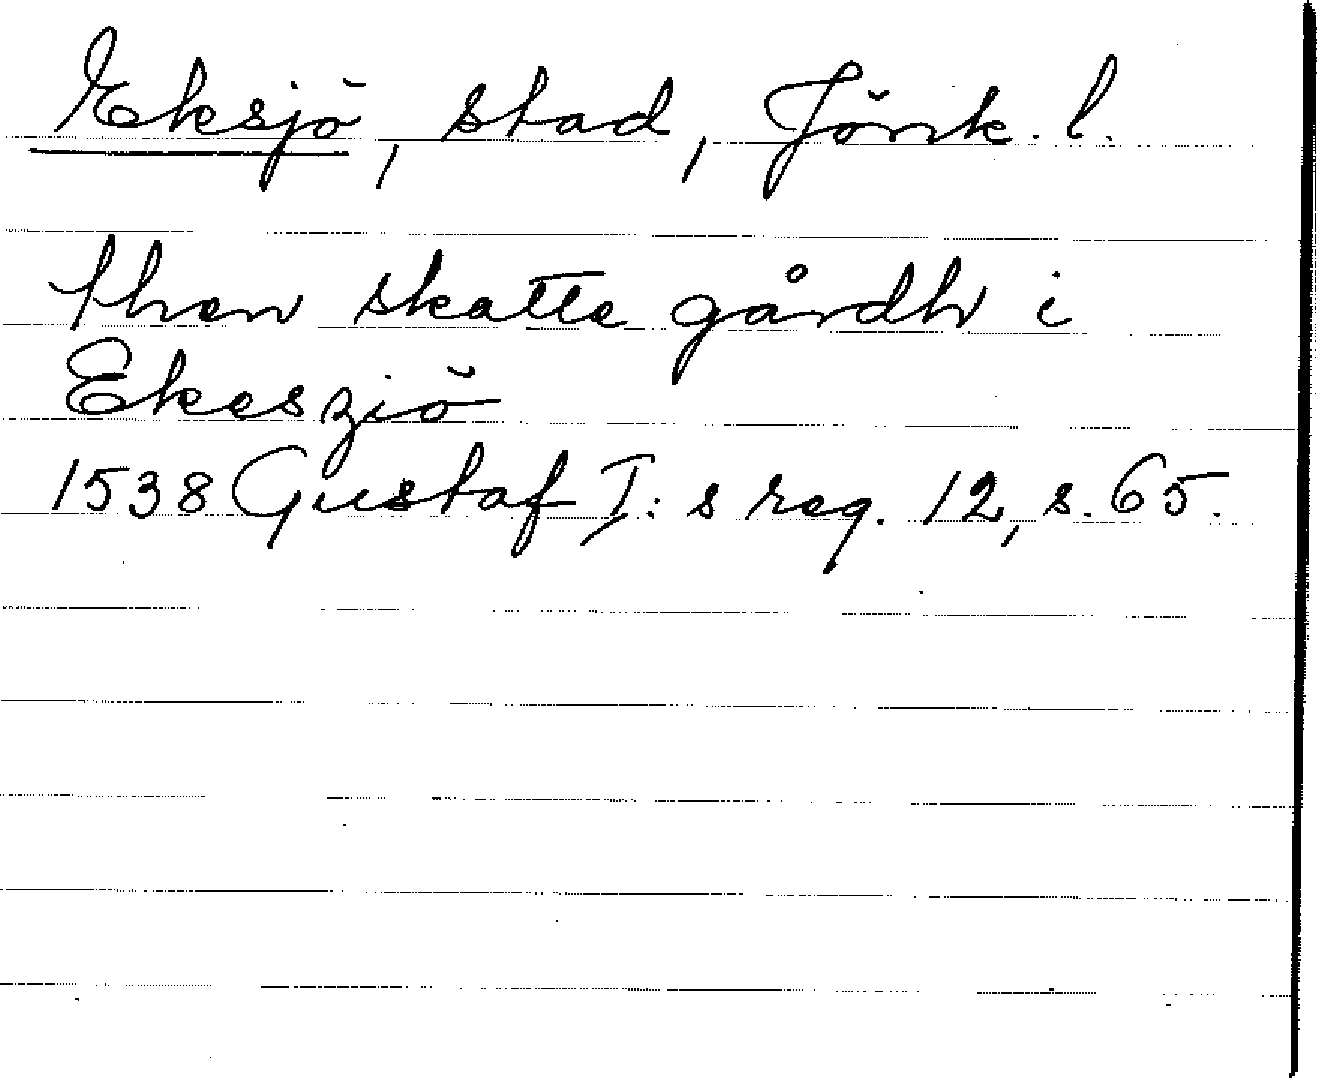 Eksjö, stad, Jönk. l.
then skatte gårdh i
Ekeszjö
1538 Gustaf I: s reg. 12, s. 65.